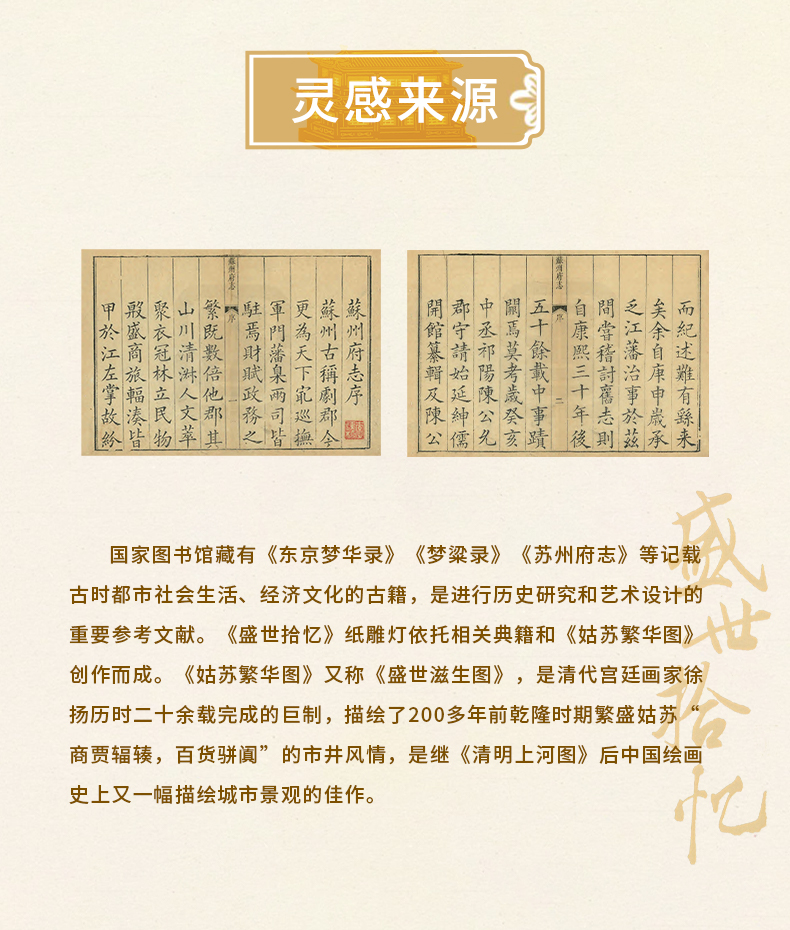 灵感来源
蘇州府志序
蘇州古稱劇郡今
更為天下冣巡撫
軍門藩臬兩司皆
駐焉財賦政務之
蘇州府志
序
一
繁既數倍他郡其
山川清淑人文萃
聚衣冠林立民物
殷盛商旅輻湊皆
甲於江左掌故紛
而紀述難有繇来
矣余自庚申歲承
乏江藩治事於茲
間嘗稽討舊志則
自康熙三十年後
蘇州府志
序
二
五十餘載中事蹟
闕焉莫考歲癸亥
中丞祁陽陳公允
郡守請始延紳儒
開館纂輯及陳公
国家图书馆藏有《东京梦华录》《梦粱录》《苏州府志》等记载
古时都市社会生活、经济文化的古籍，是进行历史研究和艺术设计的
重要参考文献。《盛世拾忆》纸雕灯依托相关典籍和《姑苏繁华图》
创作而成。《姑苏繁华图》又称《盛世滋生图》，是清代宫廷画家徐
扬历时二十余载完成的巨制，描绘了200多年前乾隆时期繁盛姑苏“
商贾辐辏，百货骈阗”的市井风情，是继《清明上河图》后中国绘画
史上又一幅描绘城市景观的佳作。
盛世拾忆